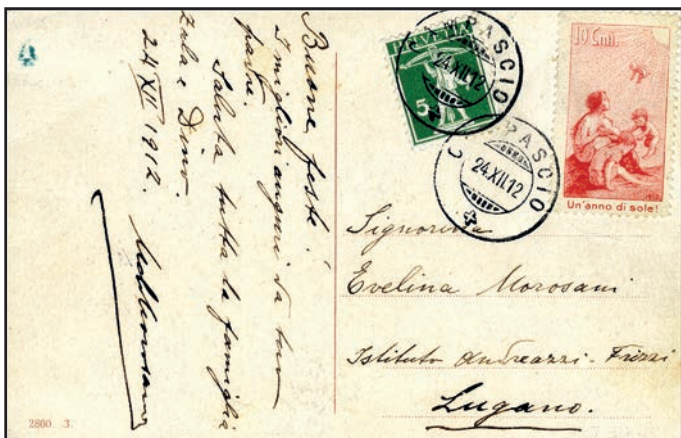 Buone feste!
I migliori auguri da tuo
padre.
Saluta tutta la famiglia
Zala e Dino.
24 XII 1912.
2800 3.
HELVETIA
5
CAMPASCIO
24.XII.12
CAMPASCIO
24.XII.12
10 Cmi.
Un'anno di sole!
Signorina
Evelina Morosani
Istituto Andreazzi-Frizzi
Lugano.